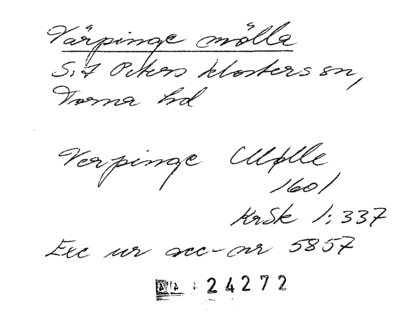 Värpinge mölla
S:t Peters klosters sn,
Torna hd
Verpinge Mølle
1601
KrSk 1:337
Exc ur acc-nr 5857
24272